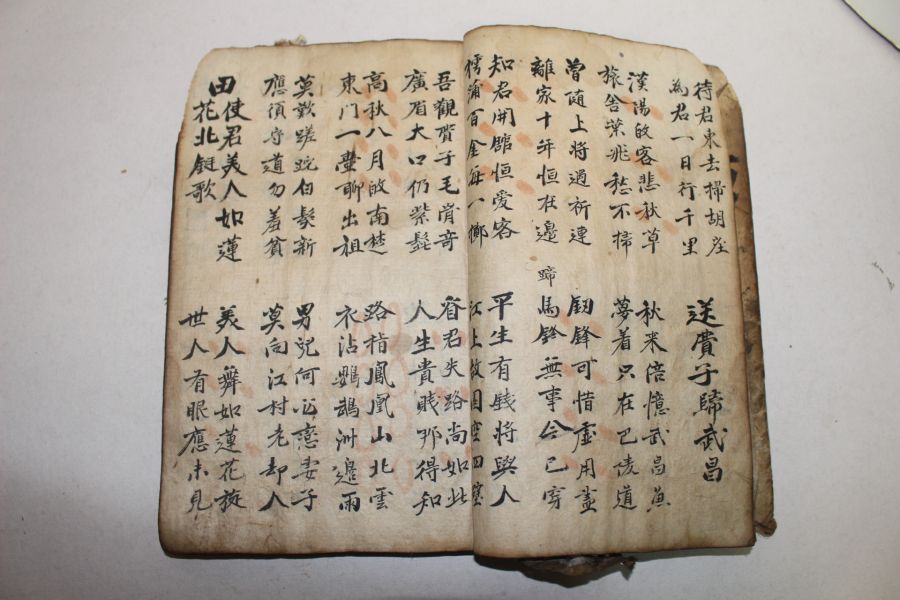 待君東去掃胡塵
為君一日行千里
送費子歸武昌
漢陽故客悲秋草
旅舍葉飛愁不掃
秋來倍憶武昌魚
夢着只在巴陵道
曾随上將過祈連
離家十年恒在邊
劒鋒可惜虛用盡
蹄
馬鈴無事今已穿
知君開館恒愛客
樗蒲百金每一擲
平生有錢將與人
江上故園空四壁
吾觀費子毛骨奇
廣眉大口仍紫髭
看君失路尚如此
人生貴賤那得知
高秋八月故南楚
東門一壺聊出祖
路指鳳凰山北雲
衣沾鸚鵡洲邊雨
莫歎蹉跎白髮新
應須守道勿羞貧
男兒何必戀妻子
莫向江村老却人
田使君美人如蓮
花北鋋歌
美人舞如蓮花旋
世人有眼應未見